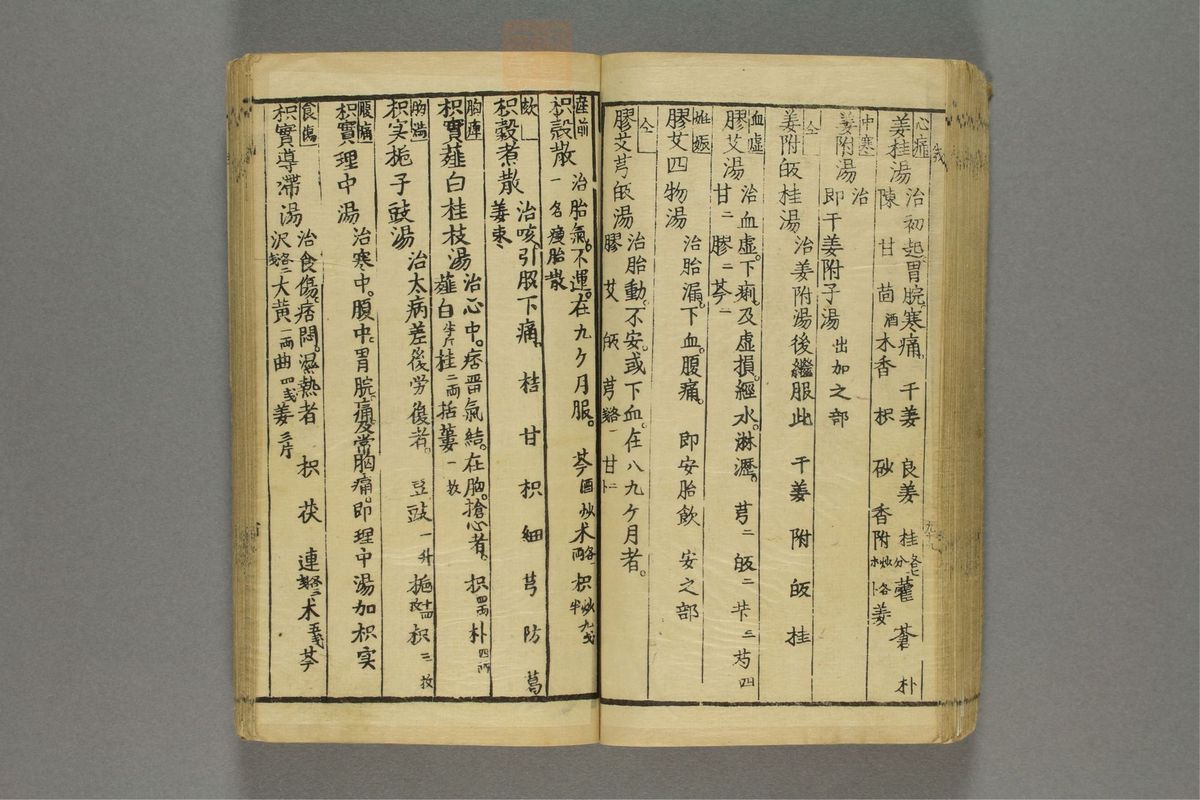 心痛
姜桂湯 治初起胃脘寒痛。 干姜 良姜 桂各七分 藿 蒼 朴
陳 甘 茴酒 木香 枳 砂 香附炒各 姜
中寒
姜附湯 治
即干姜附子湯 出加之部
仝
姜附皈桂湯 治姜附湯後繼服此 干姜 附 皈 桂
血虚
膠艾湯 治血虚。下痢。及虚損。經水。淋瀝。 芎二 皈二 芐三 芍四
甘二 膠二 芩一
妊娠
膠艾四物湯 治胎漏。下血。腹痛。 即安胎飲 安之部
仝
膠艾芎皈湯 治胎動。不安。或下血。在八九ケ月者。
膠 艾 皈 芎各一戔 甘二卜
産前
枳殻散 治胎氣不運。在九ケ月服。 芩酒炒 术各両 枳炒九戔半
一名痩胎散
欬
枳殻煮散 治咳引脇下痛。 桔 甘 枳 細 芎 防 葛
姜枣
胸痺
枳實薤白桂枝湯 治心中。痞畄氣結。在胸。搶心者。 枳四両 朴四両
薤白半斤 桂二両 括蔞一枚
胸満
枳实梔子豉湯 治太病差後労復者。 豆豉一升 梔十四枚 枳三枚
腹痛
枳實理中湯 治寒中。腹中。胃脘痛及常胸痛。即理中湯加枳实
食傷
枳實導滯湯 治食傷。痞悶。濕熱者 枳 茯 連各三戔 术五戔 芩
沢各二戔 大黄一両 曲四戔 姜三片